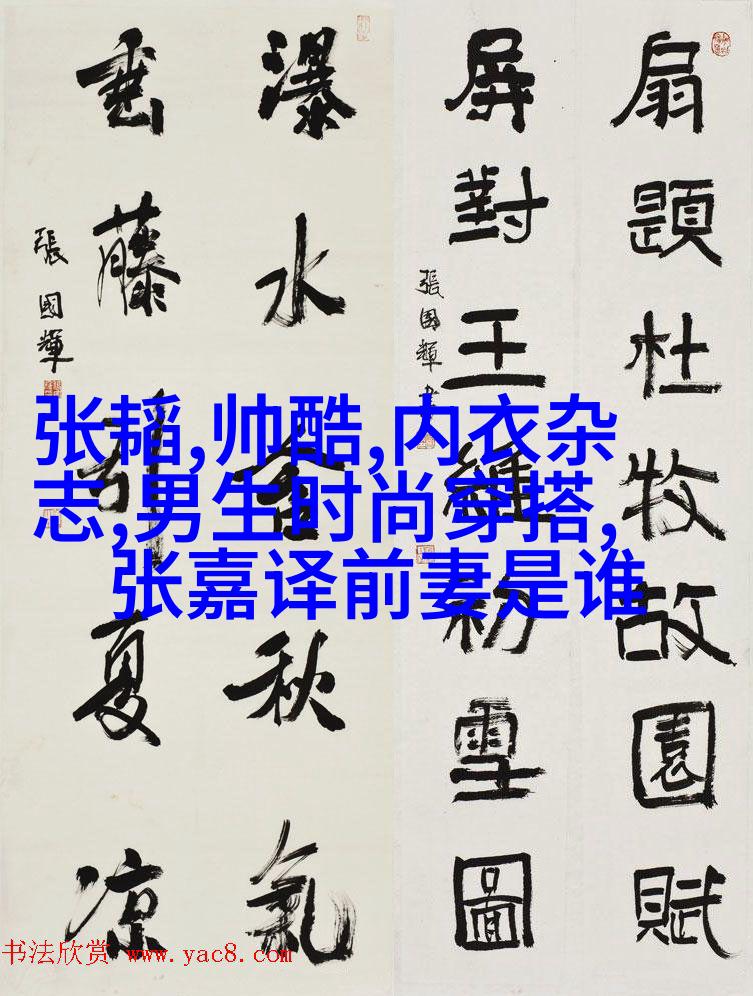 扇題杜牧故園賦
屏對王維初雪圖
張國輝書
瀑水含秋氣
垂藤引夏凉
張國輝
张韬,帅酷,内衣杂
志,男生时尚穿搭,
张嘉译前妻是谁
书法欣赏 www.yac8.com